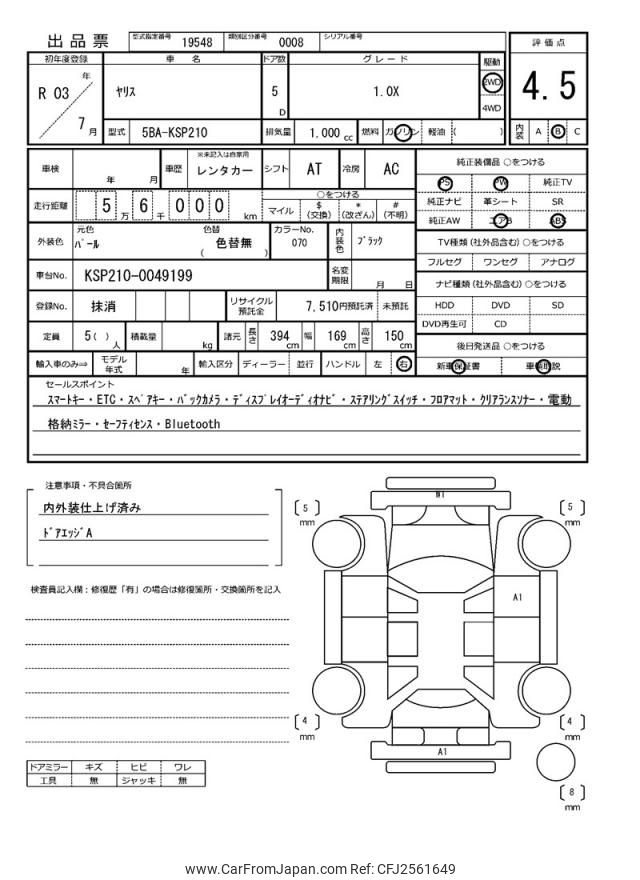 出品票 型式指定番号 19548 類別区分番号 0008 シリアル番号
評価点
4.5
初年度登録 車名 ドア数 グレード 駆動
R 03 年 7 月 ヤリス 5 D 1.0X 2WD
4WD
型式 5BA-KSP210 排気量 1.000 cc 燃料 ガソリン 軽油 ( ) 内装 A B C
車検 年 月 車歴 ※未記入は自家用 レンタカー シフト AT 冷房 AC
走行距離 5 万 6 千 0 0 0 km ○をつける
マイル $ (交換) * (改ざん) # (不明)
外装色 元色 パール 色替 色替無 ( ) カラーNo. 070 内装色 ブラック
車台No. KSP210-0049199 名変期限 月 日
登録No. 抹消 リサイクル預託金 7,510円預託済 未預託
定員 5( ) 人 積載量 kg 諸元 長さ 394 cm 幅 169 cm 高さ 150 cm
輸入車のみ⇒ モデル年式 年 輸入区分 ディーラー 並行 ハンドル 左 右
純正装備品 ○をつける
PS PW 純正TV
純正ナビ 革シート SR
純正AW エアB ABS
TV種類(社外品含む)○をつける
フルセグ ワンセグ アナログ
ナビ種類(社外品含む)○をつける
HDD DVD SD
DVD再生可 CD
後日発送品 ○をつける
新車保証書 車輌取説
セールスポイント
スマートキー・ETC・スペアキー・バックカメラ・ディスプレイオーディオナビ・ステアリングスイッチ・フロアマット・クリアランスソナー・電動
格納ミラー・セーフティセンス・Bluetooth
注意事項・不具合箇所
内外装仕上げ済み
ドアエッジA
検査員記入欄:修復歴「有」の場合は修復箇所・交換箇所を記入
W1
[ 5 ] mm
[ 5 ] mm
A1
[ 4 ] mm
[ 4 ] mm
A1
[ 8 ] mm
ドアミラー キズ ヒビ ワレ
工具 無 ジャッキ 無
www.CarFromJapan.com Ref: CFJ2561649